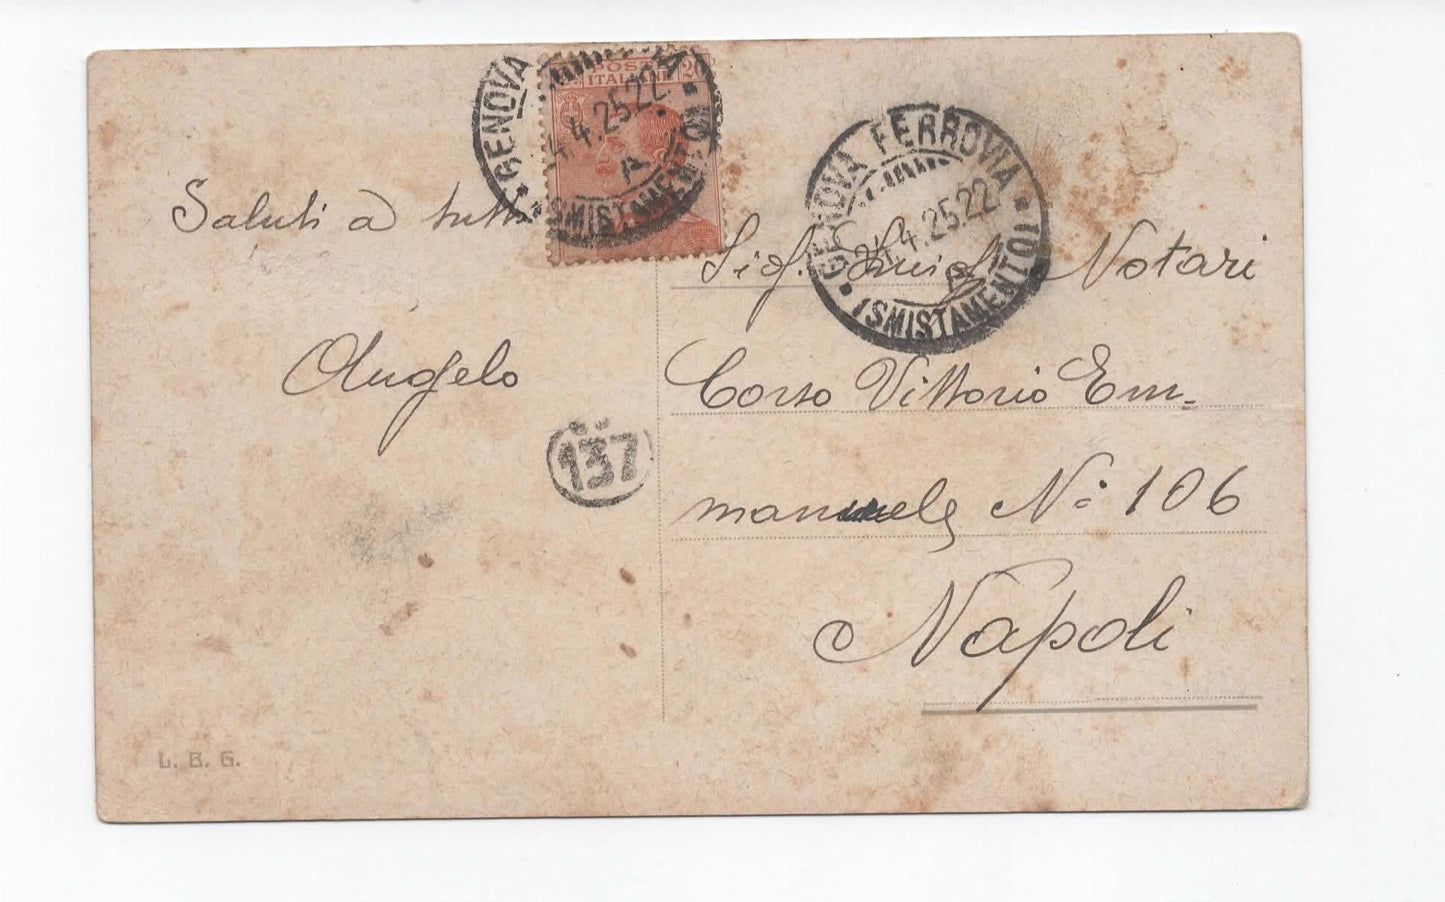 GENOVA FERROVIA
24.4.25 22
A
(SMISTAMENTO)
POSTE
ITALIANE
20
GENOVA FERROVIA
24.4.25 22
A
(SMISTAMENTO)
Saluti a tutti
Angelo
137
Sig. Luigi Notari
Corso Vittorio Em-
manuele N° 106
Napoli
L. B. G.